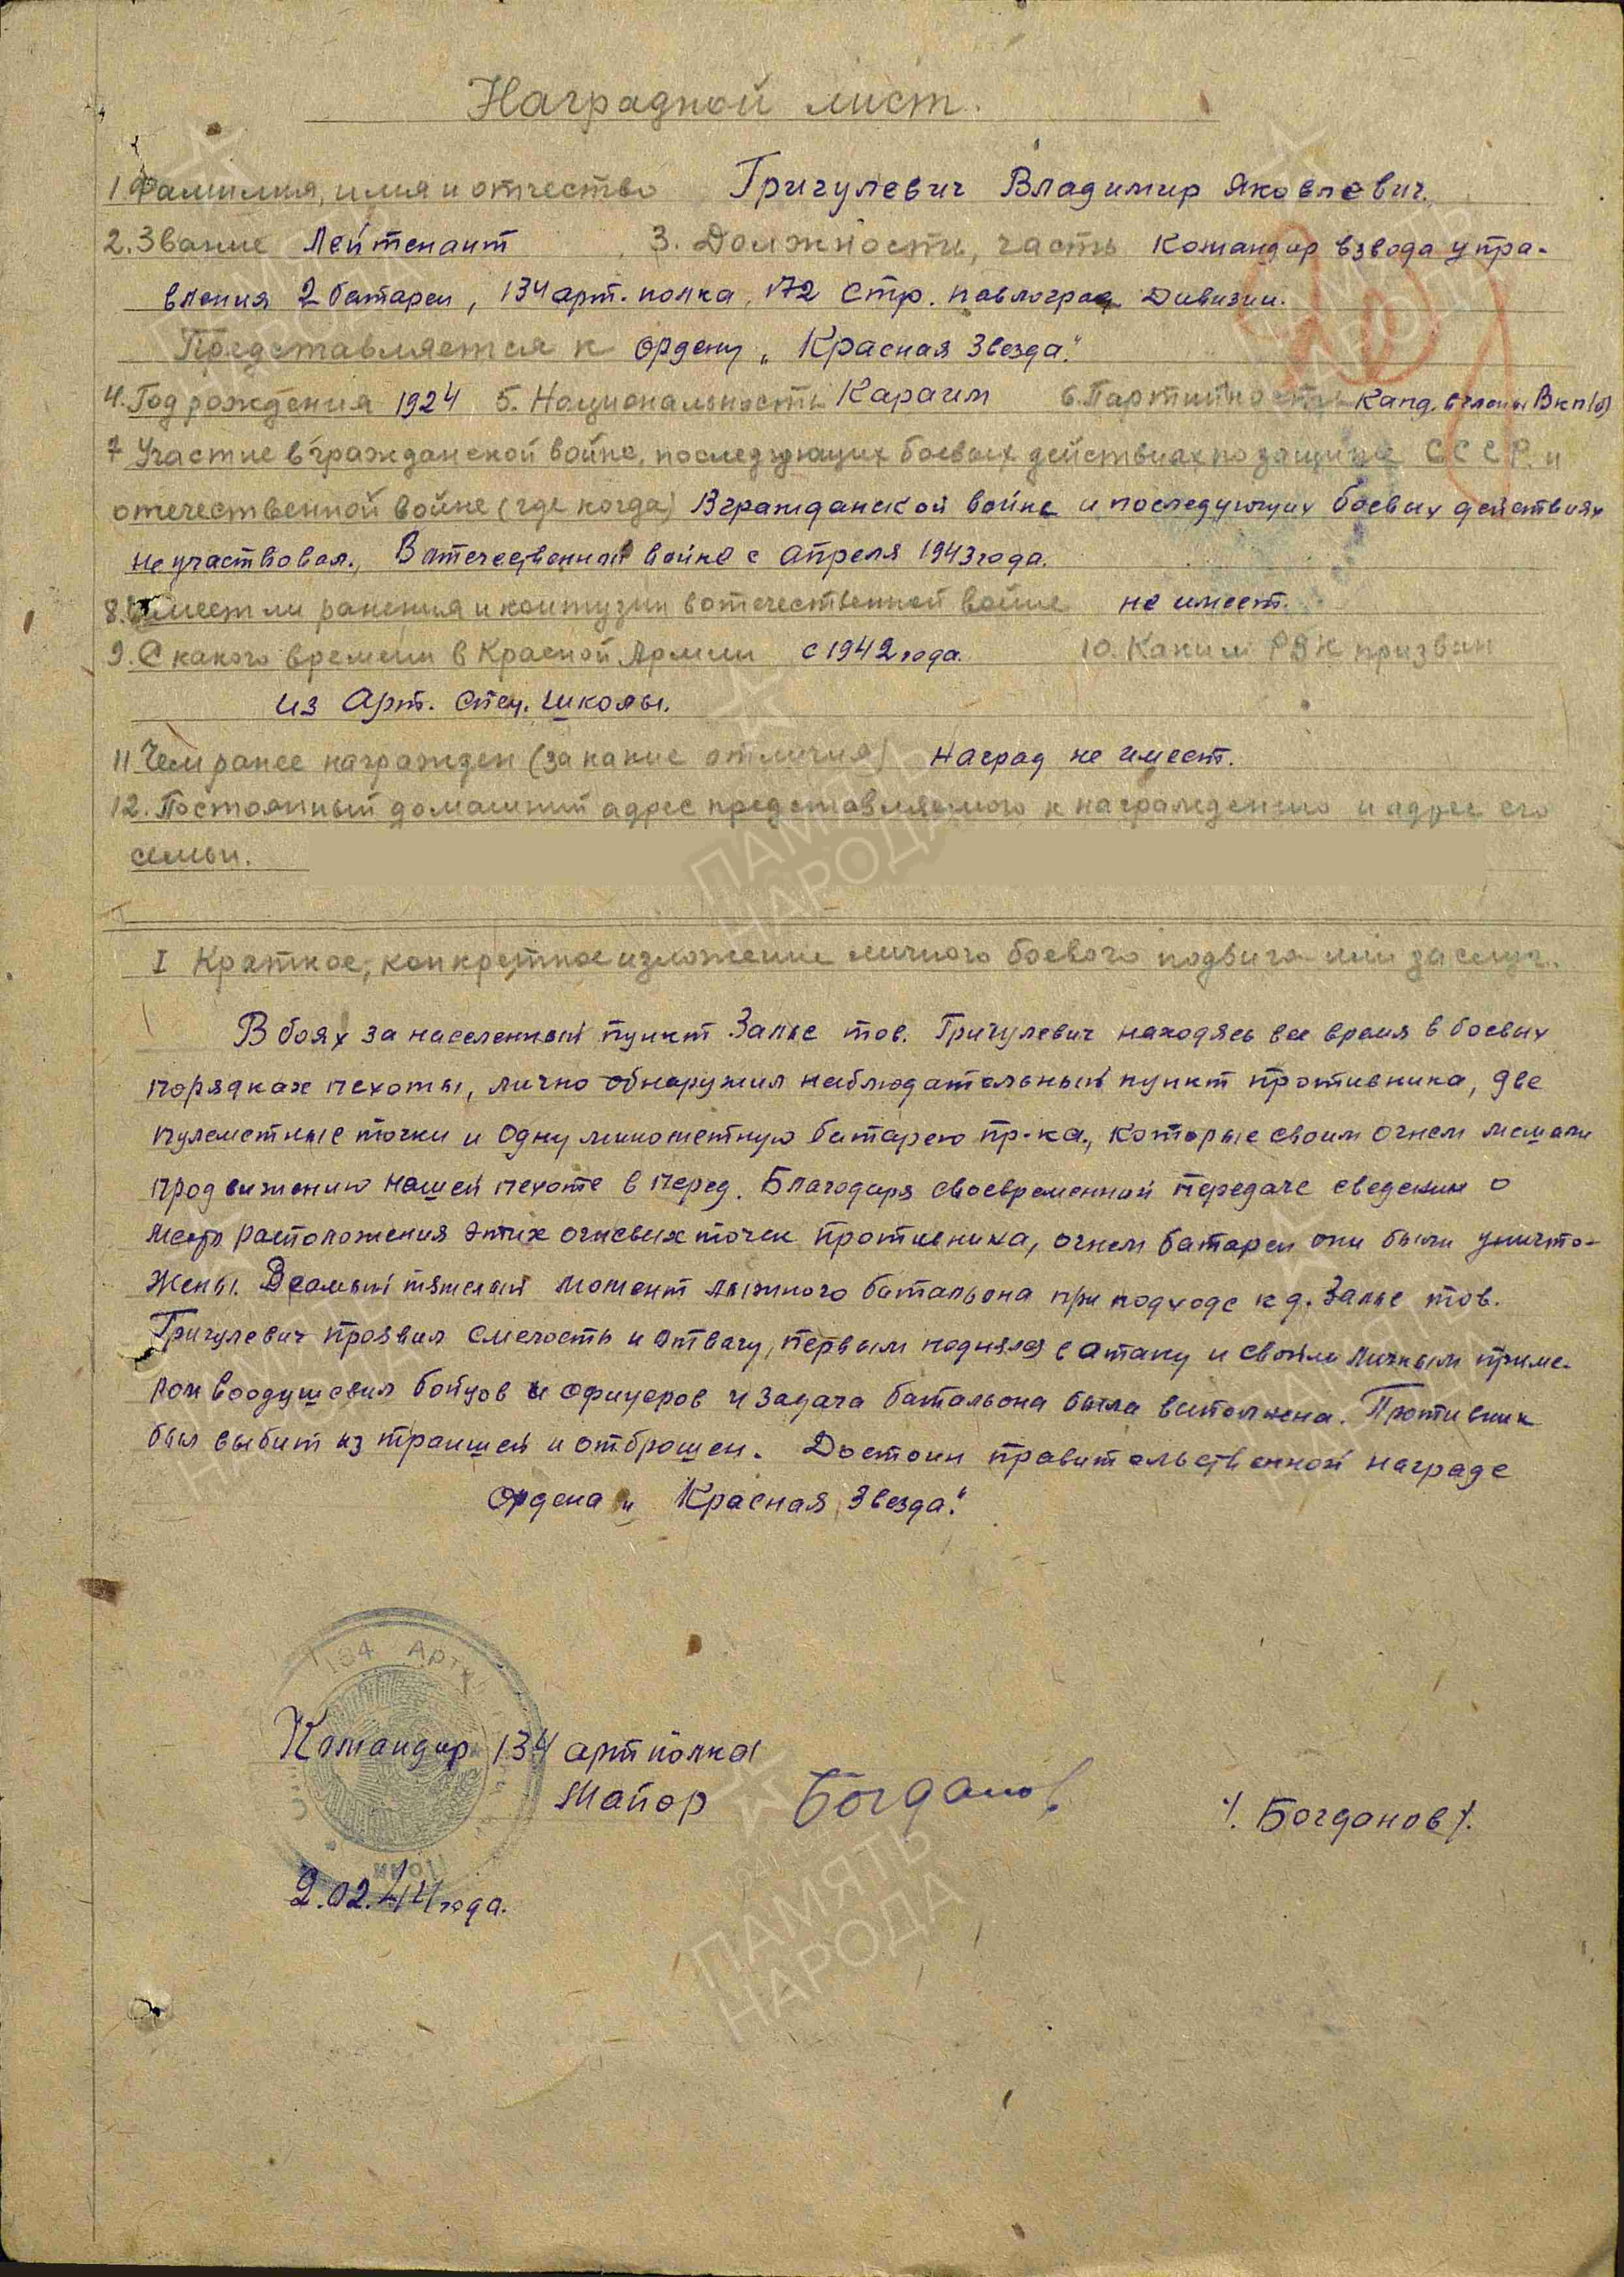 Наградной лист.
1 Фамилия, имя и отчество Григулевич Владимир Яковлевич.
2. Звание Лейтенант 3. Должность, часть Командир взвода упра-
вления 2 батареи, 134 арт. полка, 172 Стр. павлоград Дивизии.
Представляется к ордену „Красная Звезда".
4. Год рождения 1924 5. Национальность Караим 6. Партийность Канд. в члены Вкп(б)
7 Участие в гражданской войне, последующих боевых действиях по защите СССР и
отечественной войне (где когда) В гражданской войне и последующих боевых действиях
не участвовал., В отечественной войне с апреля 1943 года.
8. Имеет ли ранения и контузии в отечественной войне не имеет.
9. С какого времени в Красной Армии с 1942 года. 10. Каким РВК призван
из Арт. спец. школы.
11 Чем ранее награжден (за какие отличия) Наград не имеет.
12. Постоянный домашний адрес представляемого к награждению и адрес его
семьи.
I Краткое, конкретное изложение личного боевого подвига или заслуг.
В боях за населенный пункт Залье тов. Григулевич находясь все время в боевых
порядках пехоты, лично обнаружил наблюдательный пункт противника, две
пулеметные точки и одну минометную батарею пр-ка., которые своим огнем мешали
продвижению нашей пехоте в перед. Благодаря своевременной передаче сведении о
месте расположения этих огневых точек противника, огнем батареи они были уничто-
жены. В самый тяжелый момент лыжного батальона при подходе к д. Залье тов.
Григулевич проявил смелость и отвагу, первым поднялся в атаку и своим личным приме-
ром воодушевил бойцов и офицеров и задача батальона была выполнена. Противник
был выбит из траншей и отброшен. Достоин правительственной награде
Ордена „Красная Звезда".
134 Арт
Командир 134 артполка
Майор Богданов /. Богданов /.
2.02.44 года.
ПАМЯТЬ НАРОДА